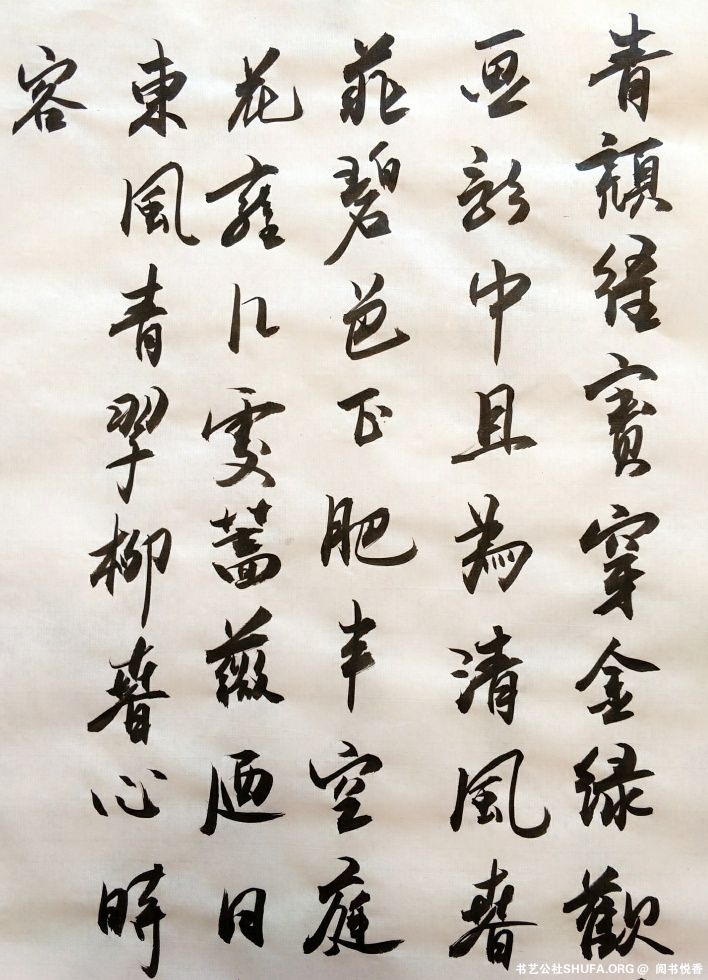 青顏經賓穿金綠歡
画新中且為清風春
菲碧芭正肥半空庭
花雍几雯蓋薇迺日
東風青翠柳春心時
容
书艺公社SHUFA.ORG @ 阅书悦香